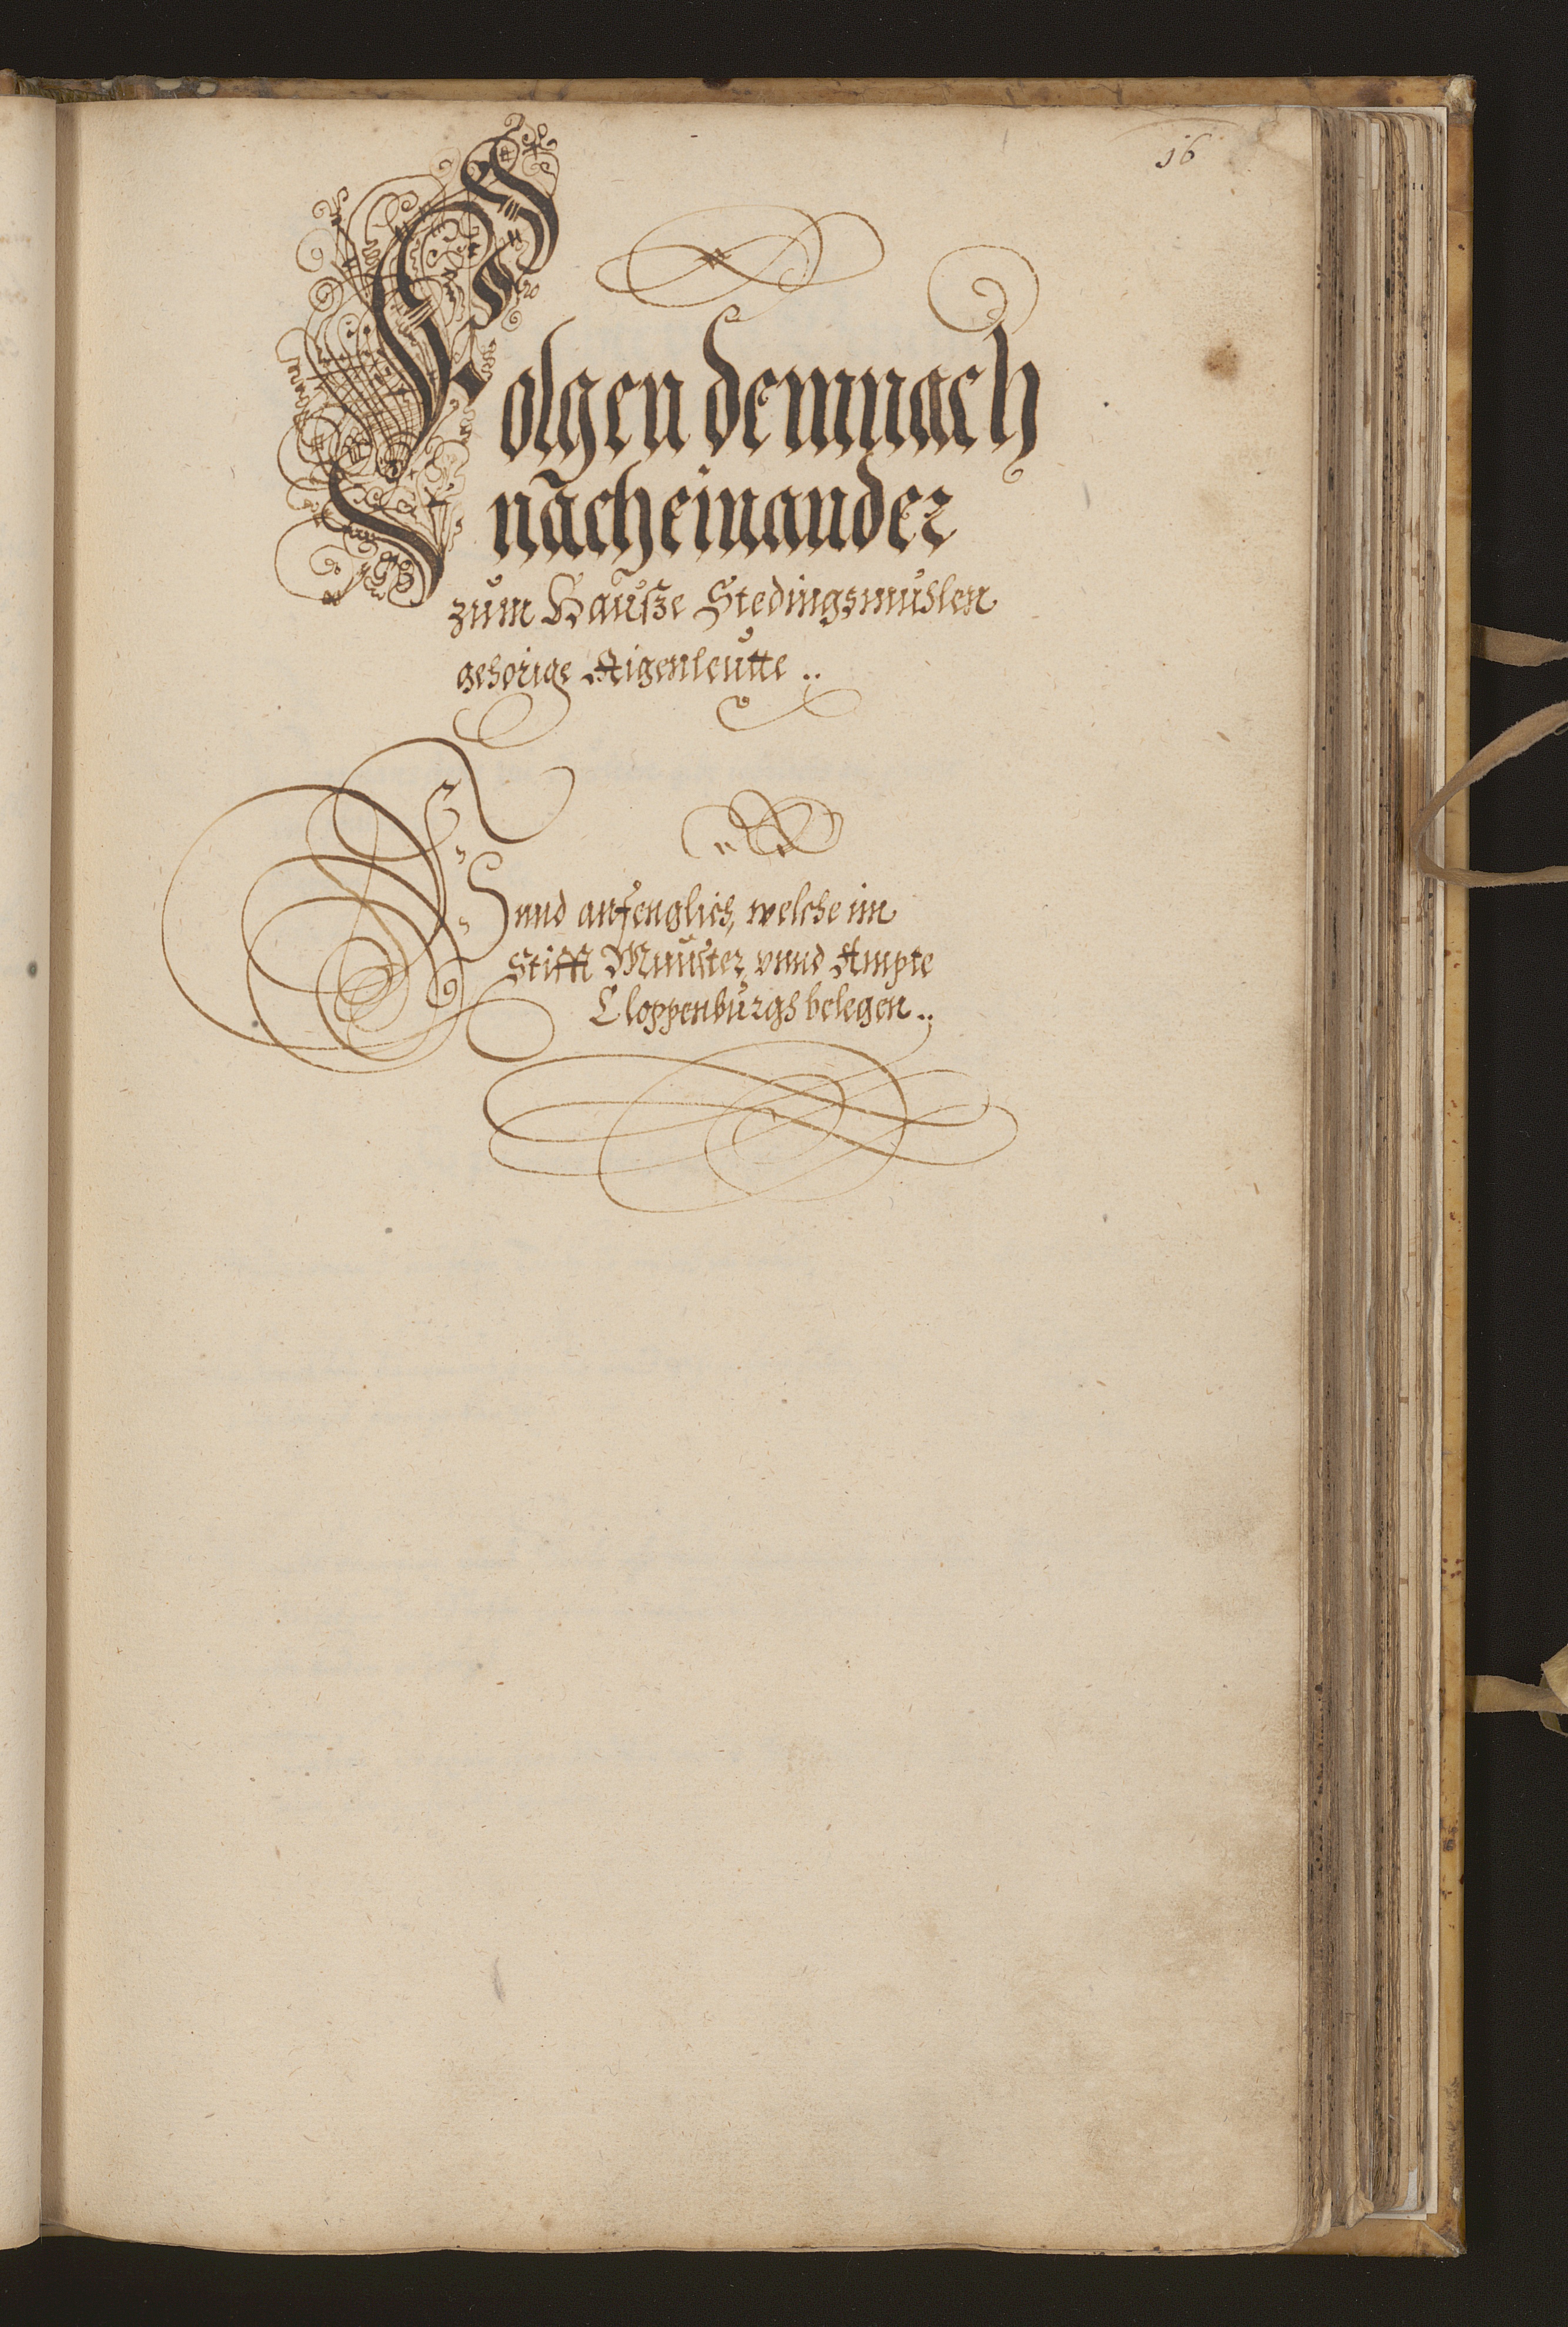 16
Folgen demnach
nacheinander
zum Hausze Stedingsmuhlen
gehorige Aigenleutte ..
Vnnd anfenglich, welche im
Stifft Munster vnnd Ampte
Cloppenburgh belegen ..